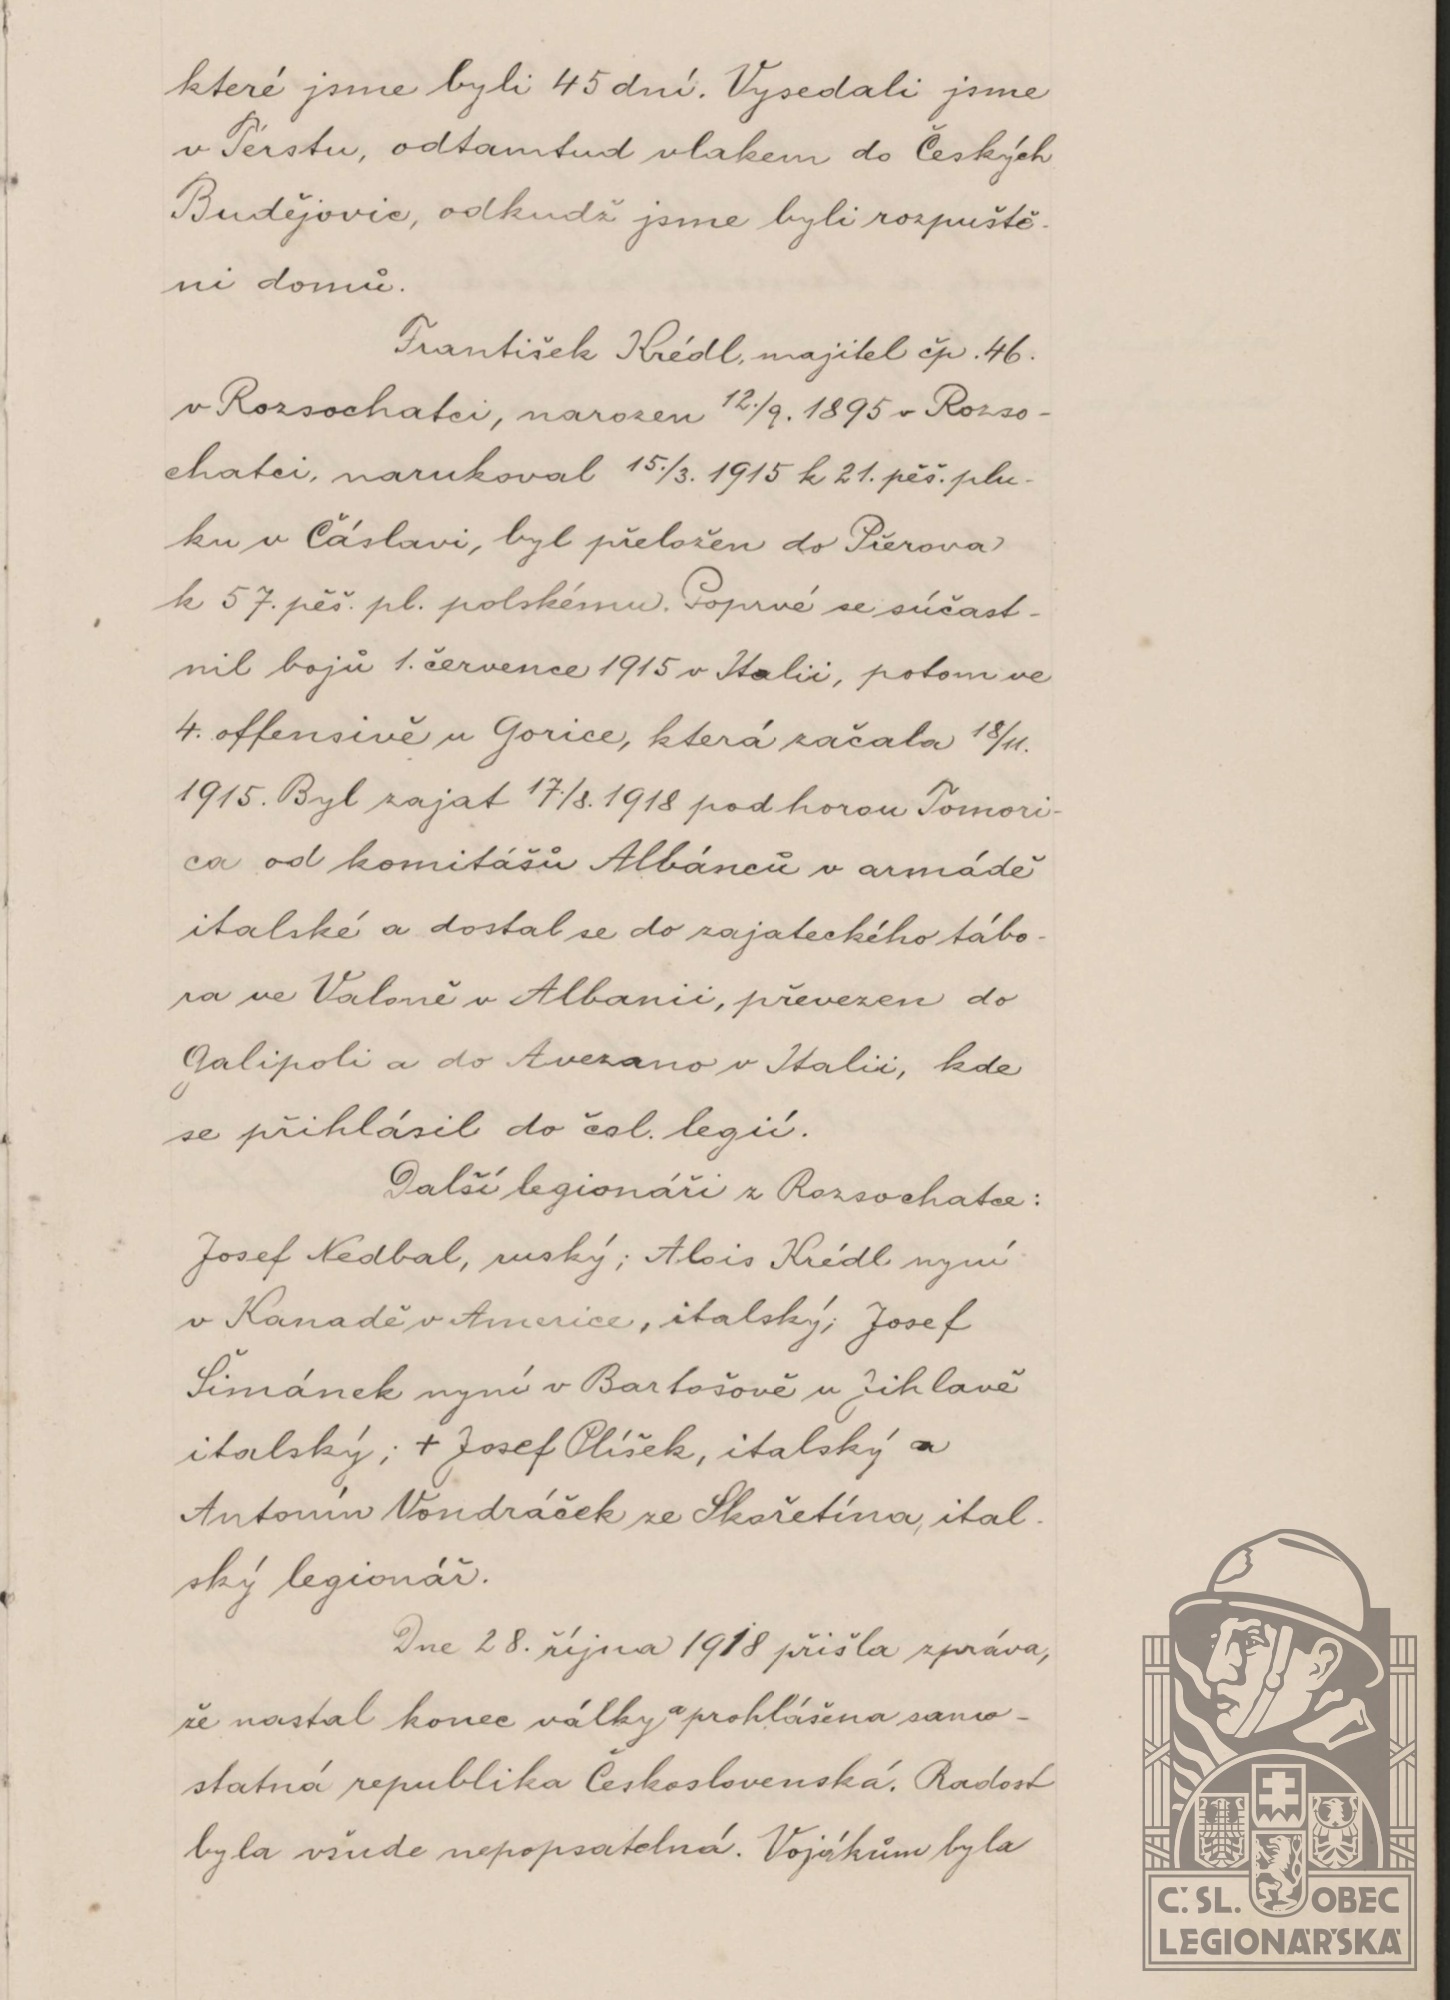 které jsme byli 45 dní. Vysedali jsme
v Terstu, odtamtud vlakem do Českých
Budějovic, odkudž jsme byli rozpuště-
ni domů.
František Krédl, majitel čp. 46.
v Rozsochatci, narozen 12./9. 1895 v Rozso-
chatci, narukoval 15./3. 1915 k 21. pěš. plu-
ku v Čáslavi, byl přeložen do Přerova
k 57. pěš. pl. polskému. Poprvé se súčast-
nil bojů 1. července 1915 v Italii, potom ve
4. offensivě u Gorice, která začala 18/11.
1915. Byl zajat 17./8. 1918 pod horou Tomori-
ca od komitášů Albánců v armádě
italské a dostal se do zajateckého tábo-
ra ve Valoně v Albanii, převezen do
Galipoli a do Avezano v Italii, kde
se přihlásil do čsl. legií.
Další legionáři z Rozsochatce:
Josef Nedbal, ruský; Alois Krédl nyní
v Kanadě v Americe, italský; Josef
Šimánek nyní v Bartošově u Jihlavě
italský; + Josef Plíšek, italský a
Antonín Vondráček ze Skořetína, ital-
ský legionář.
Dne 28. října 1918 přišla zpráva,
že nastal konec války a prohlášena samo-
statná republika Československá. Radost
byla všude nepopsatelná. Vojákům byla
Č. SL. OBEC
LEGIONÁŘSKÁ